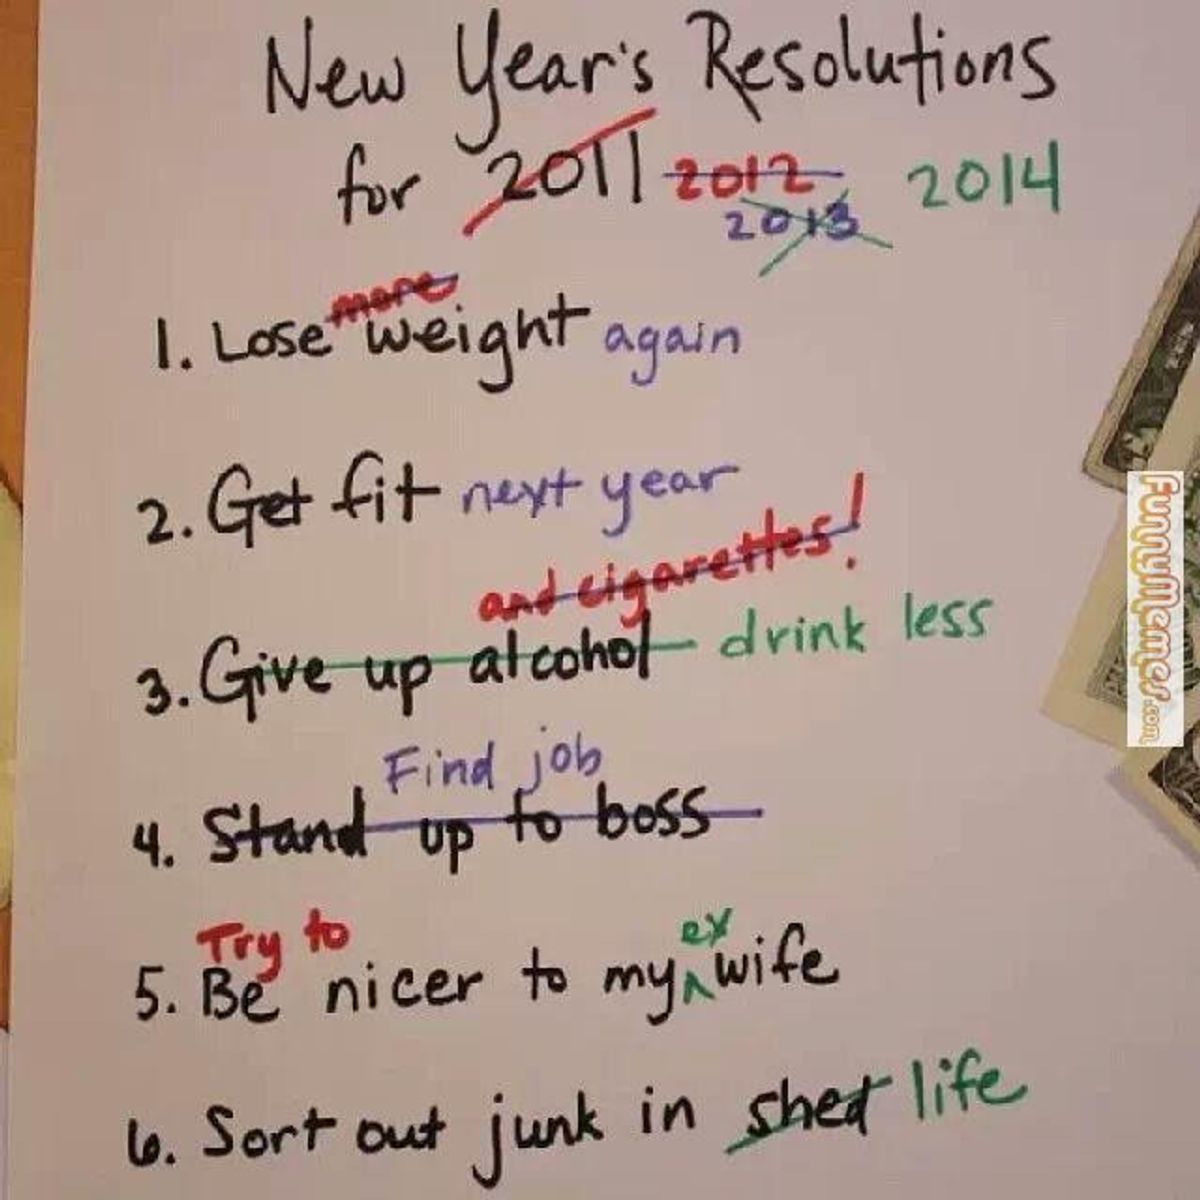 New Year's Resolutions
for 2011 2012 2014
2013
more
1. Lose weight again
2. Get fit next year
and cigarettes!
3. Give up alcohol drink less
Find job
4. Stand up to boss
Try to ex
5. Be nicer to my wife
6. Sort out junk in shed life
FunnyMemes.com